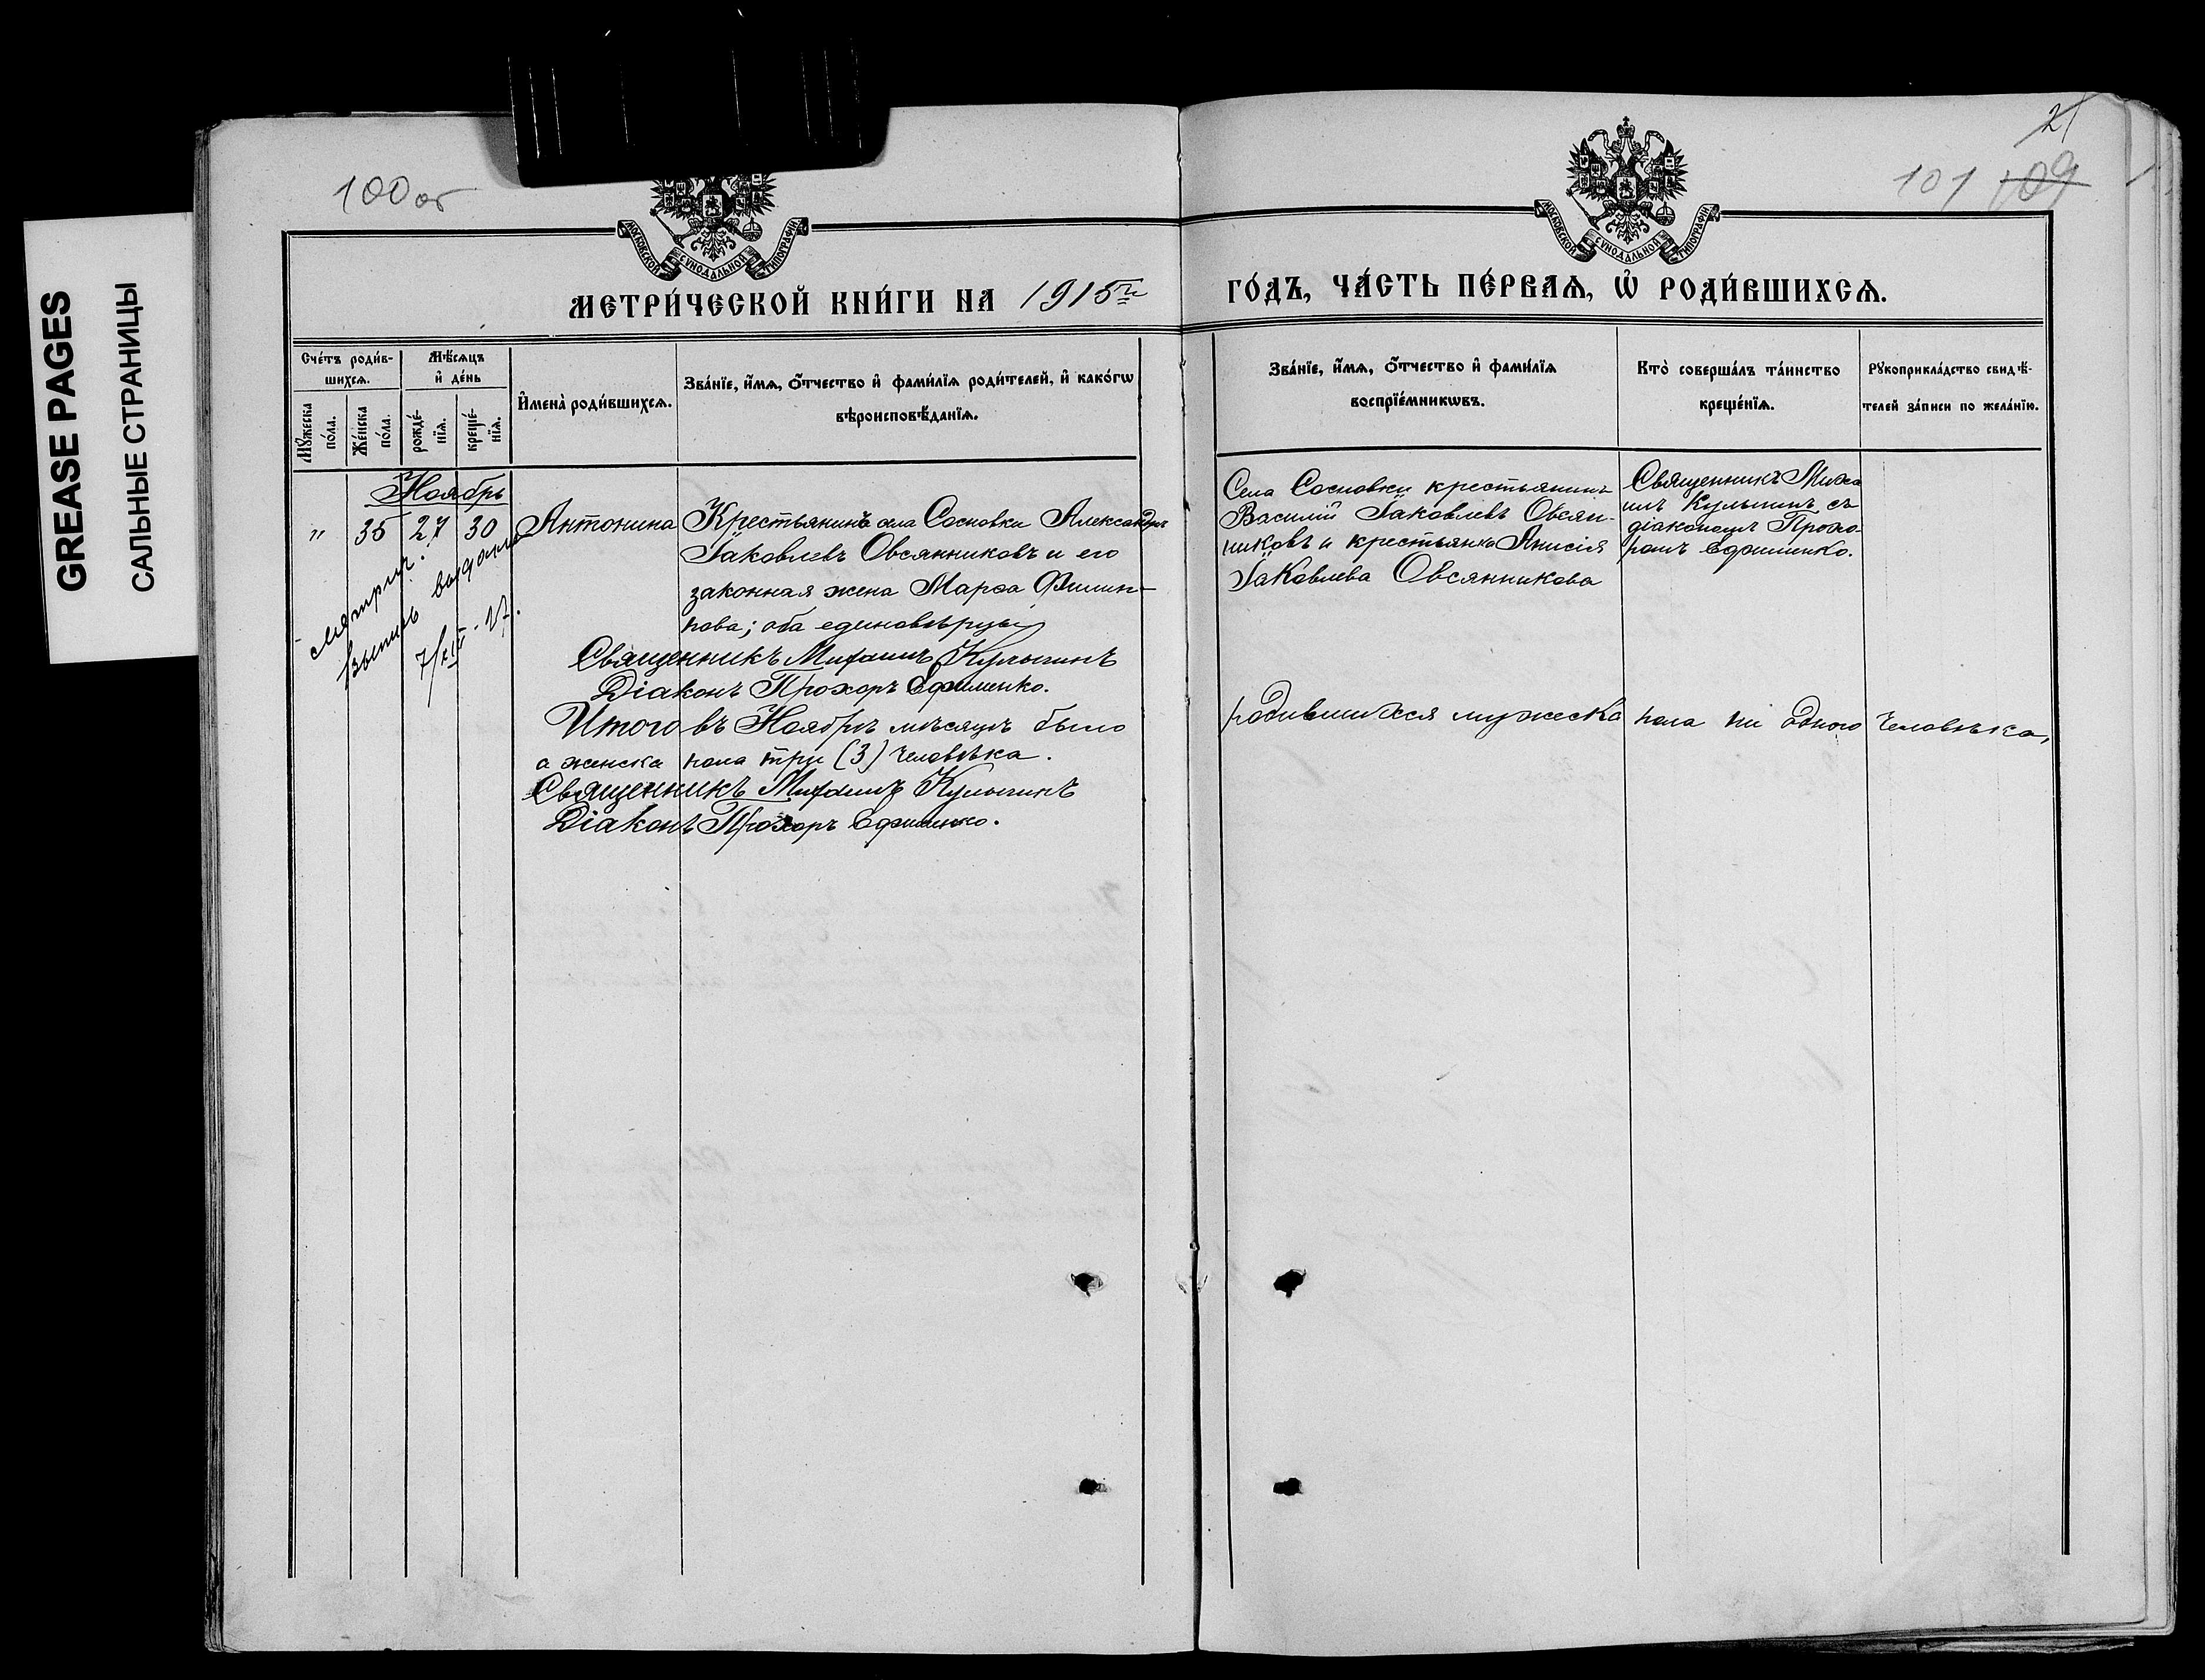 GREASE PAGES
САЛЬНЫЕ СТРАНИЦЫ
100 об
21
101 109
МОСКОВСКОЙ СѴНОДАЛЬНОЙ ТИПОГРАФІИ
МОСКОВСКОЙ СѴНОДАЛЬНОЙ ТИПОГРАФІИ
МЕТРИ́ЧЕСКОЙ КНИ́ГИ НА 1915 й
ГО́ДЪ, ЧА́СТЬ ПЕ́РВАѦ, Ѡ҆ РОДИ́ВШИХСѦ.
Сче́тъ роди́в-
шихсѧ.
Мꙋ́жеска по́ла.
Же́нска по́ла.
Мѣ́сѧцъ
и҆ де́нь
рожде́-
нїѧ.
креще́-
нїѧ.
И҆мена̀ роди́вшихсѧ.
Зва́нїе, и҆́мѧ, ѻ҆́тчество и҆ фами́лїѧ роди́телей, и҆ како́гѡ
вѣроисповѣ́данїѧ.
Зва́нїе, и҆́мѧ, ѻ҆́тчество и҆ фами́лїѧ
воспрїе́мникѡвъ.
Кто̀ соверша́лъ та́инство
креще́нїѧ.
Рꙋкоприкла́дство свидѣ́-
телей за́писи по жела́нїю.
Ноябрь
" 35 27 30 Антонина
Крестьянинъ села Сосновки Александръ
Іаковлевъ Овсянниковъ и его
законная жена Марѳа Филип-
пова; оба единовѣрцы
Села Сосновки крестьянинъ
Василій Іаковлевъ Овсян-
никовъ и крестьянка Анисія
Іаковлева Овсянникова
Священникъ Миха
илъ Кулыгинъ съ
діакономъ Прохо-
ромъ Ефименко.
метрич.
выпись выдана
7/XII - 15.
Священникъ Михаилъ Кулыгинъ
Діаконъ Прохоръ Ефименко.
Итого въ Ноябрѣ мѣсяцѣ было родившихся мужеска пола ни одного человѣка,
а женска пола три (3) человѣка.
Священникъ Михаилъ Кулыгинъ
Діаконъ Прохоръ Ефименко.